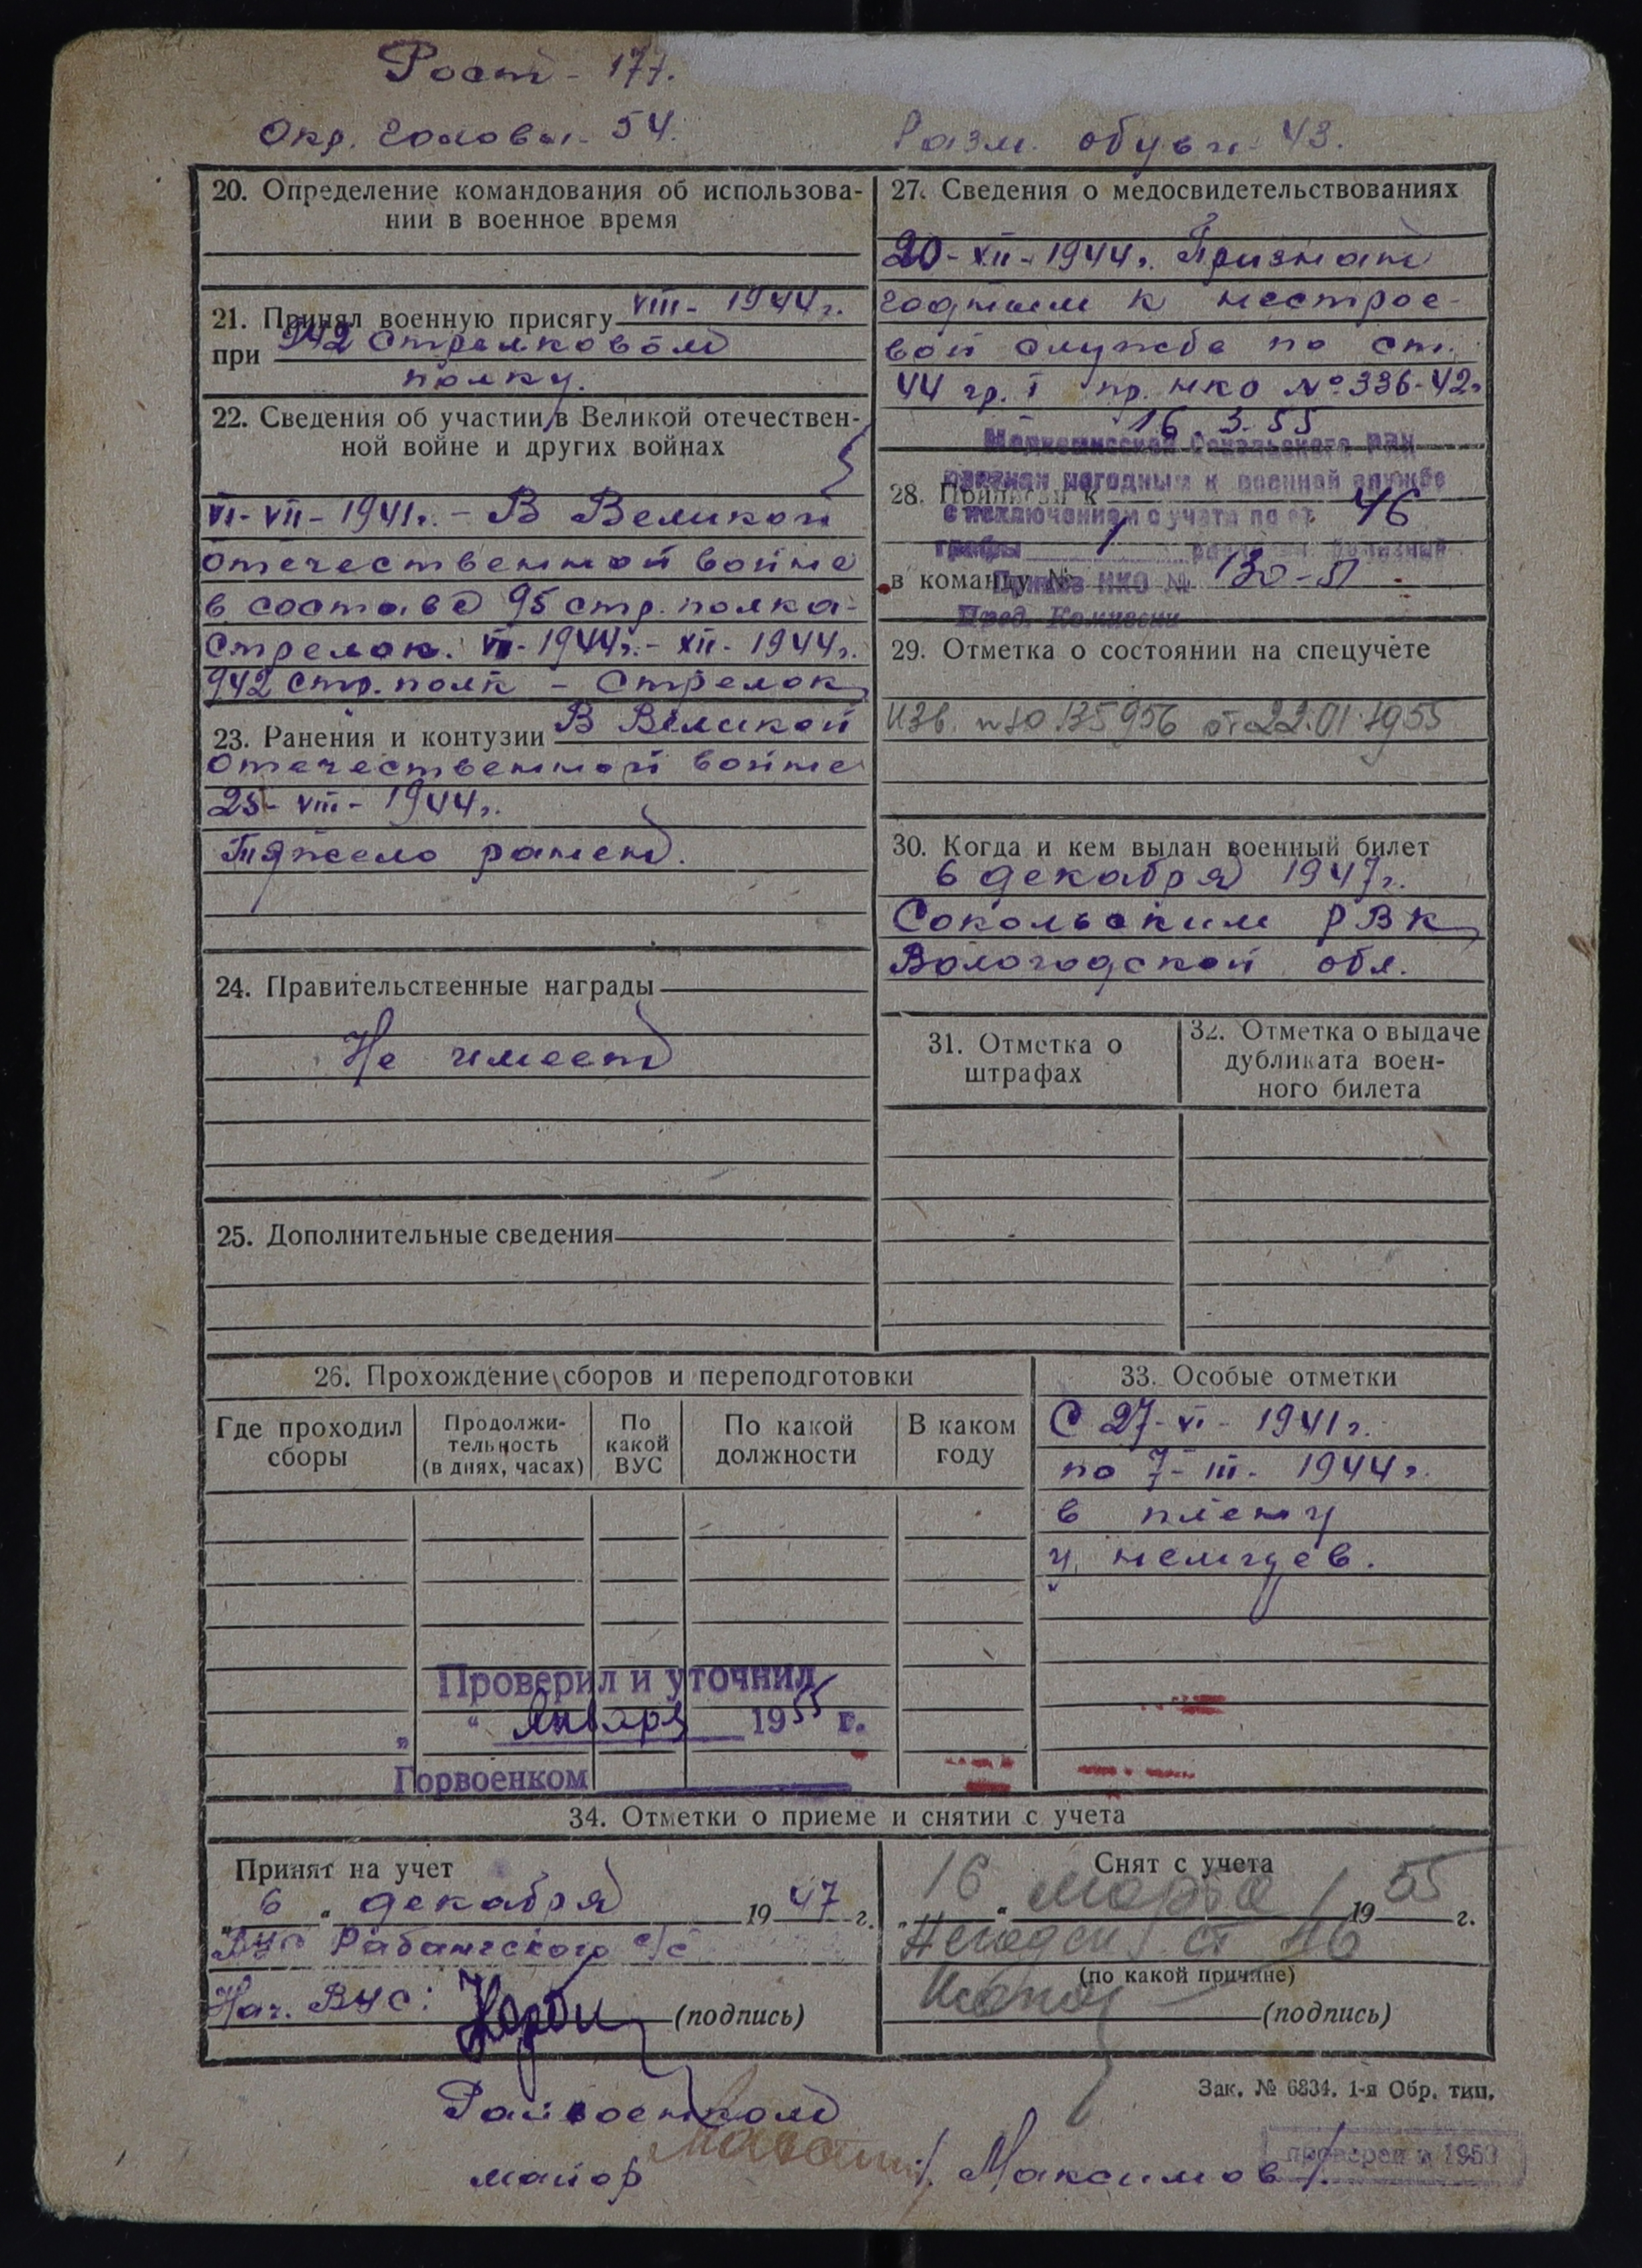 Рост - 177.
Окр. головы - 54.
Разм. обуви - 43.
20. Определение командования об использова-
нии в военное время
21. Принял военную присягу VIII - 1944 г.
при 942 стрелковом
полку.
22. Сведения об участии в Великой отечествен-
ной войне и других войнах
VI - VII - 1941 г. - В Великой
отечественной войне
в составе 95 стр. полка -
стрелок. VI - 1944 г. - XII - 1944 г.
942 стр. полк - стрелок
23. Ранения и контузии В Великой
отечественной войне
25 - VIII - 1944 г.
Тяжело ранен.
24. Правительственные награды
Не имеет
25. Дополнительные сведения
27. Сведения о медосвидетельствованиях
20 - XII - 1944 г. Признан
годным к нестрое-
вой службе по ст.
44 гр. I пр. НКО № 336-42 г.
16. 3. 55
Медкомиссией Сокольского РВК
признан негодным к военной службе
с исключением с учета по ст. 46
графы 1 расписания болезней
Приказ НКО № 130-51
Пред. Комиссии
28. Приписан к
в команду №
29. Отметка о состоянии на спецучете
Изв. 135956 от 22.01.1955
30. Когда и кем выдан военный билет
6 декабря 1947 г.
Сокольским РВК
Вологодской обл.
31. Отметка о
штрафах
32. Отметка о выдаче
дубликата воен-
ного билета
26. Прохождение сборов и переподготовки
Где проходил
сборы
Продолжи-
тельность
(в днях, часах)
По
какой
ВУС
По какой
должности
В каком
году
33. Особые отметки
С 27 - VI - 1941 г.
по 7 - III - 1944 г.
в плену
у немцев.
Проверил и уточнил
„ “ Января 1955 г.
Горвоенком
34. Отметки о приеме и снятии с учета
Принят на учет
„ 6 “ декабря 1947 г.
ВУС Рабангского с/с
Нач. ВУС:
(подпись)
Снят с учета
„ 16 “ марта 1955 г.
Негоден ст 46
(по какой причине)
(подпись)
Зак. № 6834. 1-я Обр. тип.
Райвоенком
майор /Максимов/.
проверен в 1953